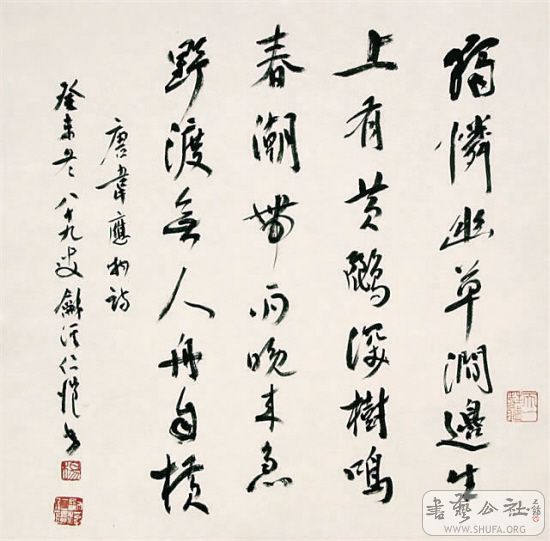 獨憐幽草澗邊生
上有黃鸝深樹鳴
春潮帶雨晚來急
野渡無人舟自橫
唐韋應物詩
癸未冬八十九叟龢溪仁愷書
楊
書藝公社
WWW.SHUFA.ORG